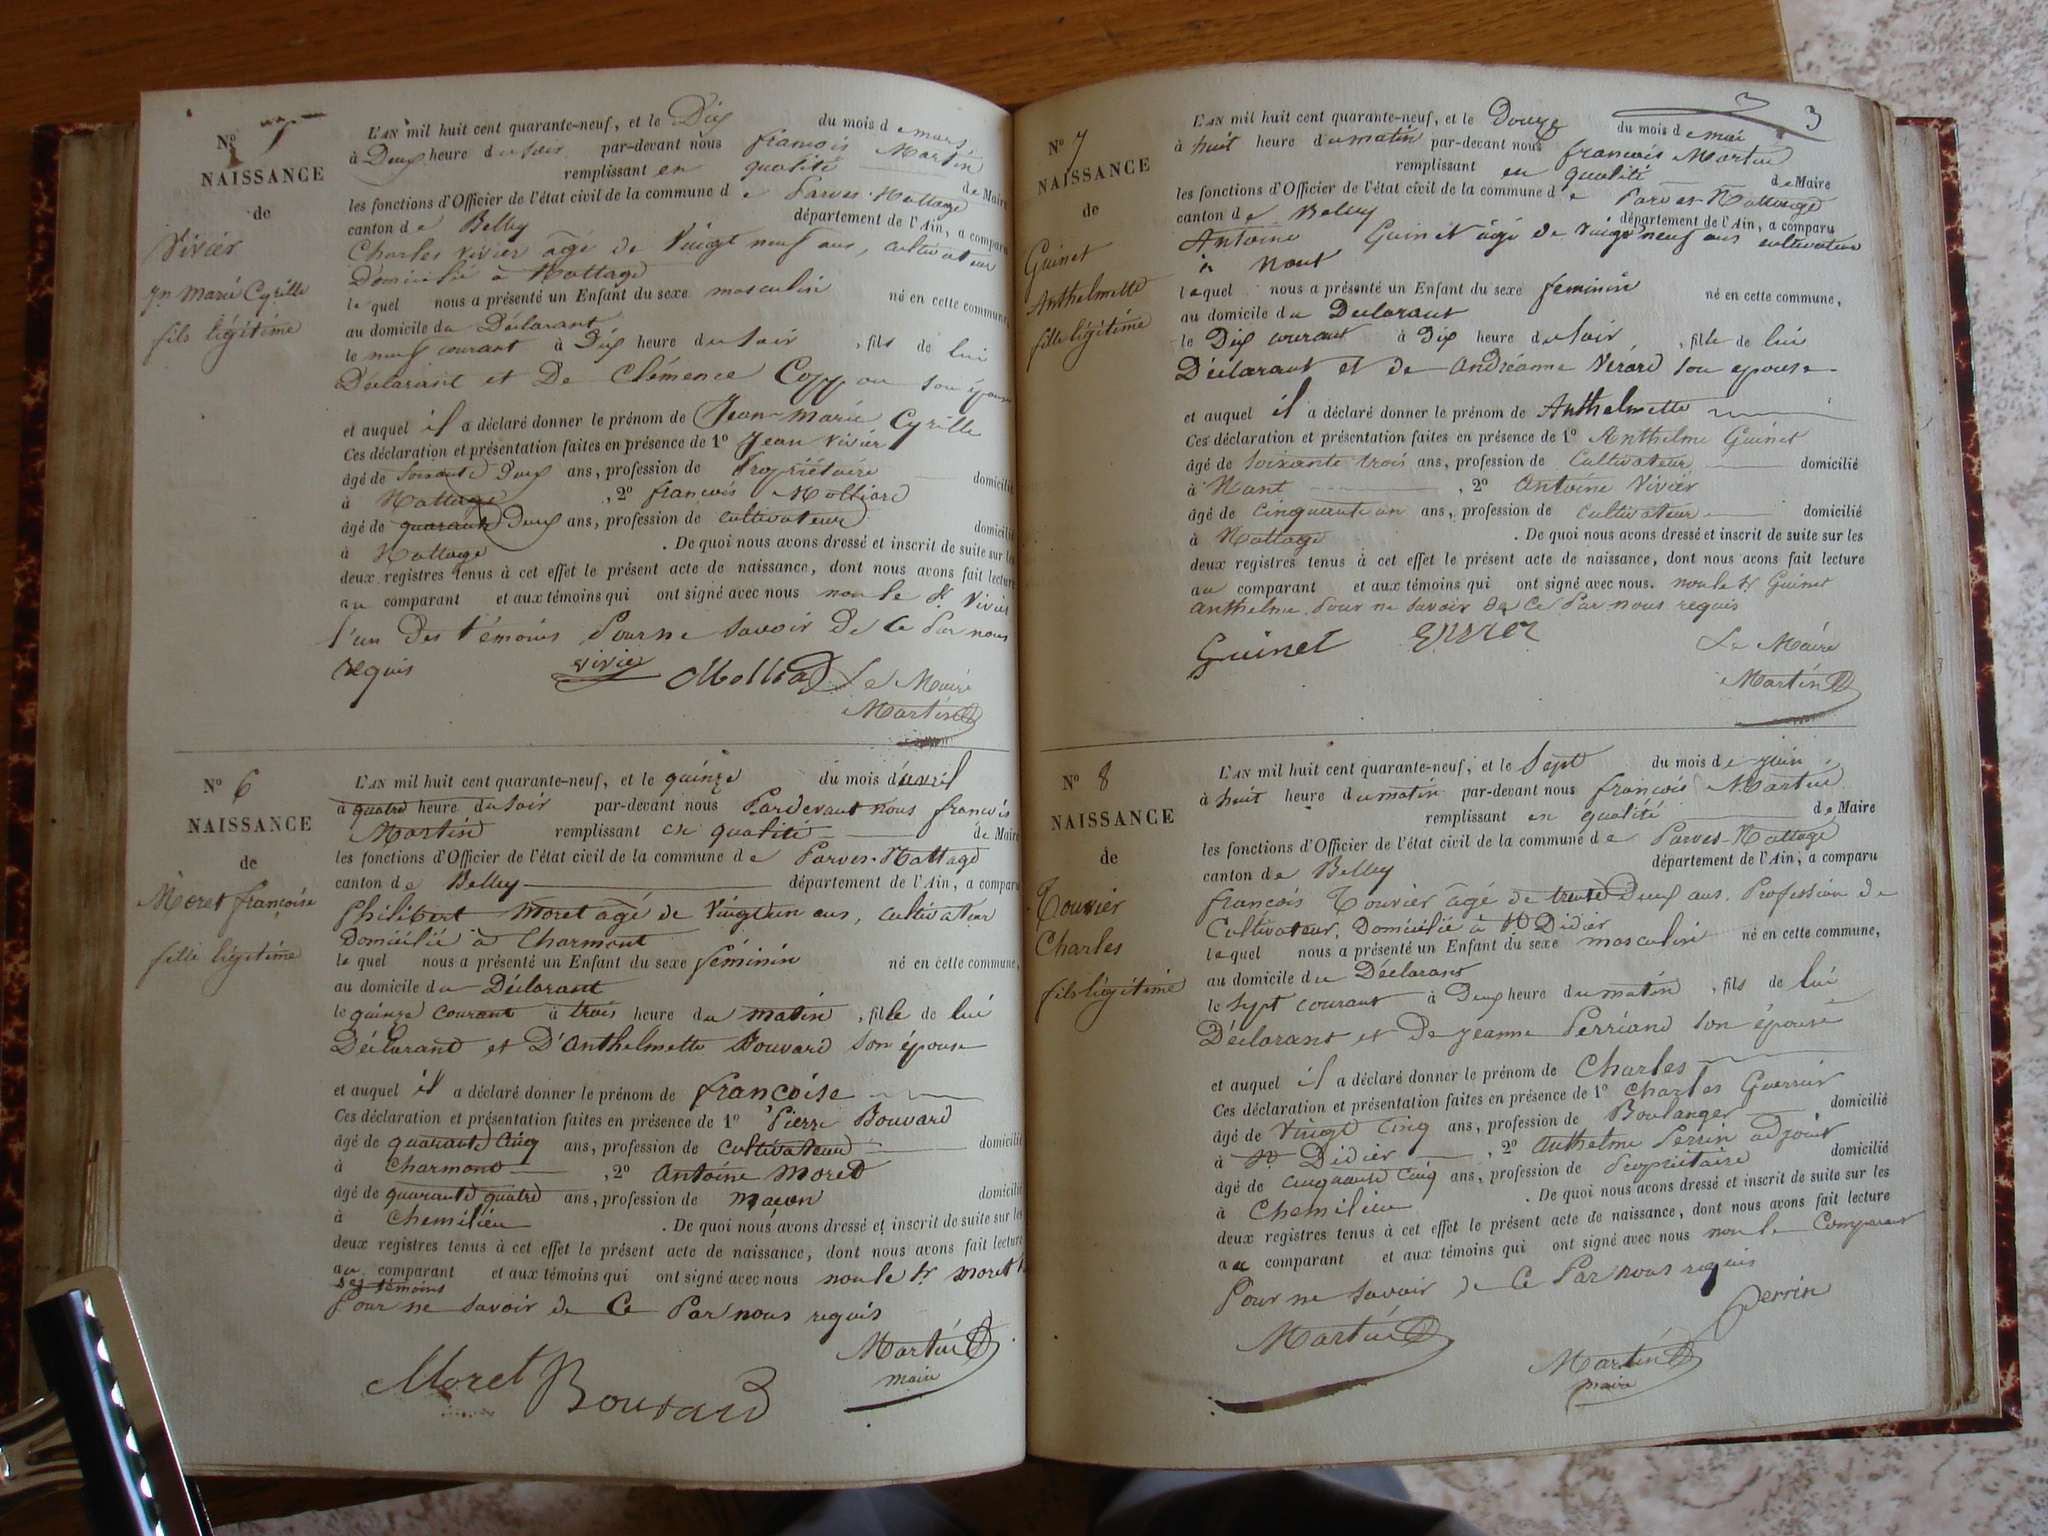 Nº 5
NAISSANCE
de
Vivier
Jn Marie Cyrille
fils légitime
L'AN mil huit cent quarante-neuf, et le Dix du mois de mars
à Deux heure du soir par-devant nous françois Martin
remplissant en qualité de Maire
les fonctions d'Officier de l'état civil de la commune de Parves-Nattage
canton de Belley département de l'Ain, a comparu
Charles Vivier âgé de Vingt neuf ans, cultivateur
Domicilié à Nattage
lequel nous a présenté un Enfant du sexe masculin né en cette commune,
au domicile du Déclarant
le neuf courant à Dix heure du soir, fils de lui
Déclarant et De Clémence Coppou son épouse
et auquel il a déclaré donner le prénom de Jean-Marie Cyrille
Ces déclaration et présentation faites en présence de 1º Jean Vivier
âgé de soixante Deux ans, profession de Propriétaire domicilié
à Nattage, 2º françois Molliard
âgé de quarante Deux ans, profession de cultivateur domicilié
à Nattage. De quoi nous avons dressé et inscrit de suite sur les
deux registres tenus à cet effet le présent acte de naissance, dont nous avons fait lecture
au comparant et aux témoins qui ont signé avec nous non le Sr Vivier
l'un Des témoins Pour ne savoir De Ce Par nous
requis Vivier Molliard Le Maire
Martin
Nº 6
NAISSANCE
de
Moret françoise
fille légitime
L'AN mil huit cent quarante-neuf, et le quinze du mois d'avril
à quatre heure du soir par-devant nous Pardevant nous françois
Martin remplissant en qualité de Maire
les fonctions d'Officier de l'état civil de la commune de Parves-Nattage
canton de Belley département de l'Ain, a comparu
Philibert Moret âgé de Vingt un ans, cultivateur
domicilié à Charmont
lequel nous a présenté un Enfant du sexe féminin né en cette commune,
au domicile du Déclarant
le quinze courant à trois heure du matin, fille de lui
Déclarant et D'Anthelmette Bouvard son épouse
et auquel il a déclaré donner le prénom de françoise
Ces déclaration et présentation faites en présence de 1º Pierre Bouvard
âgé de quarante Cinq ans, profession de Cultivateur domicilié
à Charmont, 2º Antoine Moret
âgé de quarante quatre ans, profession de maçon domicilié
à Chemilieu. De quoi nous avons dressé et inscrit de suite sur les
deux registres tenus à cet effet le présent acte de naissance, dont nous avons fait lecture
au comparant et aux témoins qui ont signé avec nous non le Sr Moret
des témoins
Pour ne savoir de Ce Par nous requis
Moret Bouvard Martin
maire
3
Nº 7
NAISSANCE
de
Guinet
Anthelmette
fille légitime
L'AN mil huit cent quarante-neuf, et le Douze du mois de mai
à huit heure du matin par-devant nous françois Martin
remplissant en qualité de Maire
les fonctions d'Officier de l'état civil de la commune de Parves-Nattage
canton de Belley département de l'Ain, a comparu
Antoine Guinet âgé de Vingt neuf ans cultivateur
à Nant
lequel nous a présenté un Enfant du sexe féminin né en cette commune,
au domicile du Declarant
le Dix courant à Dix heure du soir, fille de lui
Déclarant et de Andréanne Verard son épouse
et auquel il a déclaré donner le prénom de Anthelmette
Ces déclaration et présentation faites en présence de 1º Anthelme Guinet
âgé de soixante trois ans, profession de Cultivateur domicilié
à Nant, 2º Antoine Vivier
âgé de cinquante un ans, profession de cultivateur domicilié
à Nattage. De quoi nous avons dressé et inscrit de suite sur les
deux registres tenus à cet effet le présent acte de naissance, dont nous avons fait lecture
au comparant et aux témoins qui ont signé avec nous. non le Sr Guinet
Anthelme Pour ne savoir de Ce Par nous requis
Guinet Le Maire
Martin
Nº 8
NAISSANCE
de
Touvier
Charles
fils légitime
L'AN mil huit cent quarante-neuf, et le Sept du mois de juin
à huit heure du matin par-devant nous françois Martin
remplissant en qualité de Maire
les fonctions d'Officier de l'état civil de la commune de Parves-Nattage
canton de Belley département de l'Ain, a comparu
françois Touvier âgé de trente Deux ans. Profession de
Cultivateur, Domicilié à St Didier
lequel nous a présenté un Enfant du sexe masculin né en cette commune,
au domicile du Déclarant
le sept courant à Deux heure du matin, fils de lui
Déclarant et De Jeanne Perriand son épouse
et auquel il a déclaré donner le prénom de Charles
Ces déclaration et présentation faites en présence de 1º Charles Guerrier
âgé de Vingt Cinq ans, profession de Boulanger domicilié
à St Didier, 2º Anthelme Perrin adjoint
âgé de cinquante Cinq ans, profession de Propriétaire domicilié
à Chemilieu. De quoi nous avons dressé et inscrit de suite sur les
deux registres tenus à cet effet le présent acte de naissance, dont nous avons fait lecture
au comparant et aux témoins qui ont signé avec nous non le Comparant
Pour ne savoir de Ce Par nous requis
Martin Perrin
Martin
maire